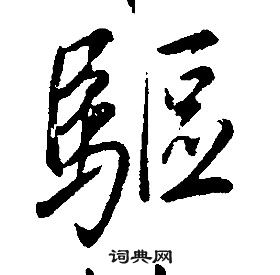 驅
词典网